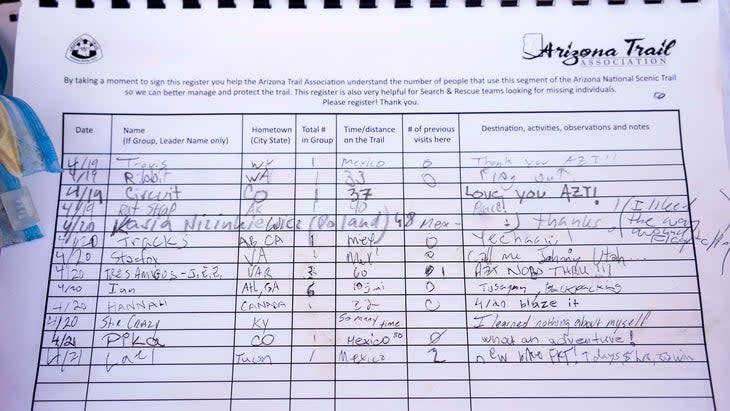 Arizona Trail
ASSOCIATION
By taking a moment to sign this register you help the Arizona Trail Association understand the number of people that use this segment of the Arizona National Scenic Trail
so we can better manage and protect the trail. This register is also very helpful for Search & Rescue teams looking for missing individuals.
Please register! Thank you.
Date Name (If Group, Leader Name only) Hometown (City State) Total # in Group Time/distance on the Trail # of previous visits here Destination, activities, observations and notes
4/19 Travis WY 1 Mexico 0 Thank you AZT!!
4/19 WA 1 33 0
4/19 Circuit CO 1 37 Love you AZT!
4/19 Rat AK 1 40
4/20 Kasia (Poland) 48 Mex :) thanks !(I liked the way around
4/20 Tracks CA 1 Mex 0 Yeehaaw
4/20 VA 1 Mex 0 Call me Johnny Utah...
4/20 TRES AMIGOS - VAR 3 60 1 AZT NOBO THRU !!!
4/20 Ian Atl, GA 6 mi 0 Tusayan, Backpacking
4/20 HANNAH CANADA 1 22 0 4/20 blaze it
4/20 Stir Crazy KY So many time I learned nothing about myself
4/21 Pika CO 1 Mexico so 0 what an adventure!
4/21 Tucon 1 Mexico 2 new FKT! 7 days